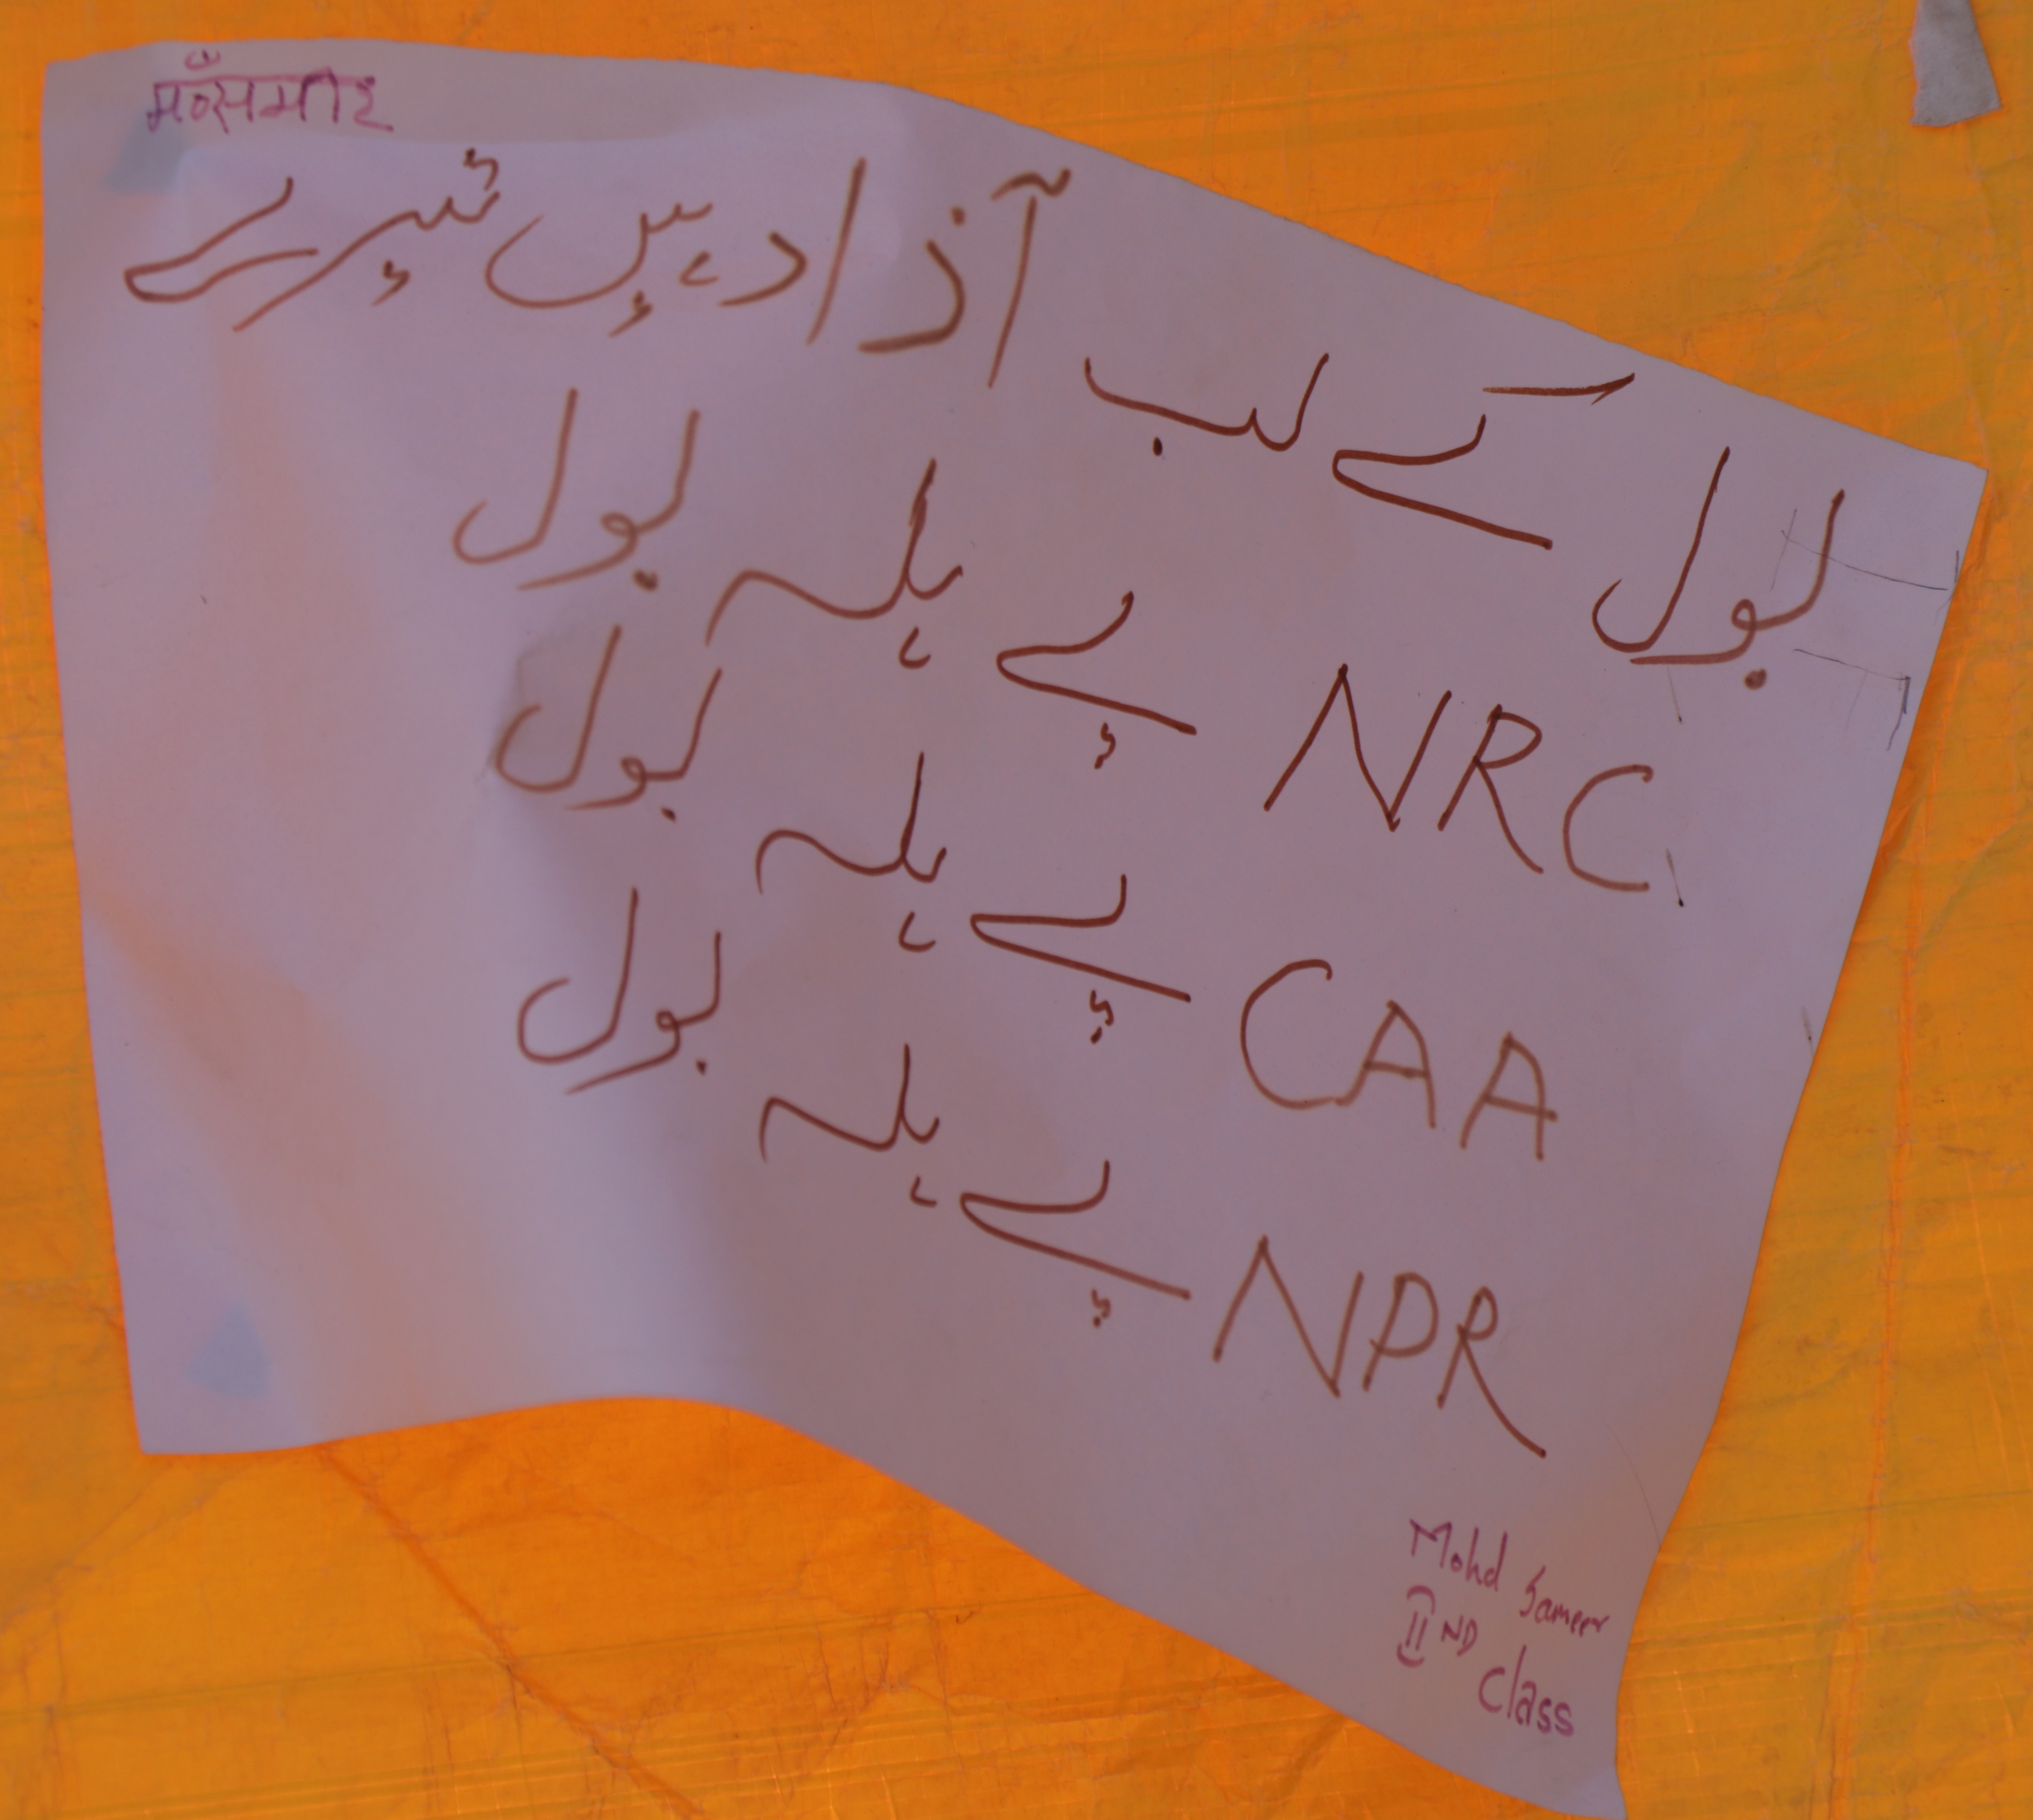 मो० समीर
بول کے لب آذاد ہیں تیرے
NRC پے ہلہ بول
CAA پے ہلہ بول
NPR پے ہلہ بول
Mohd Sameer
II ND
Class